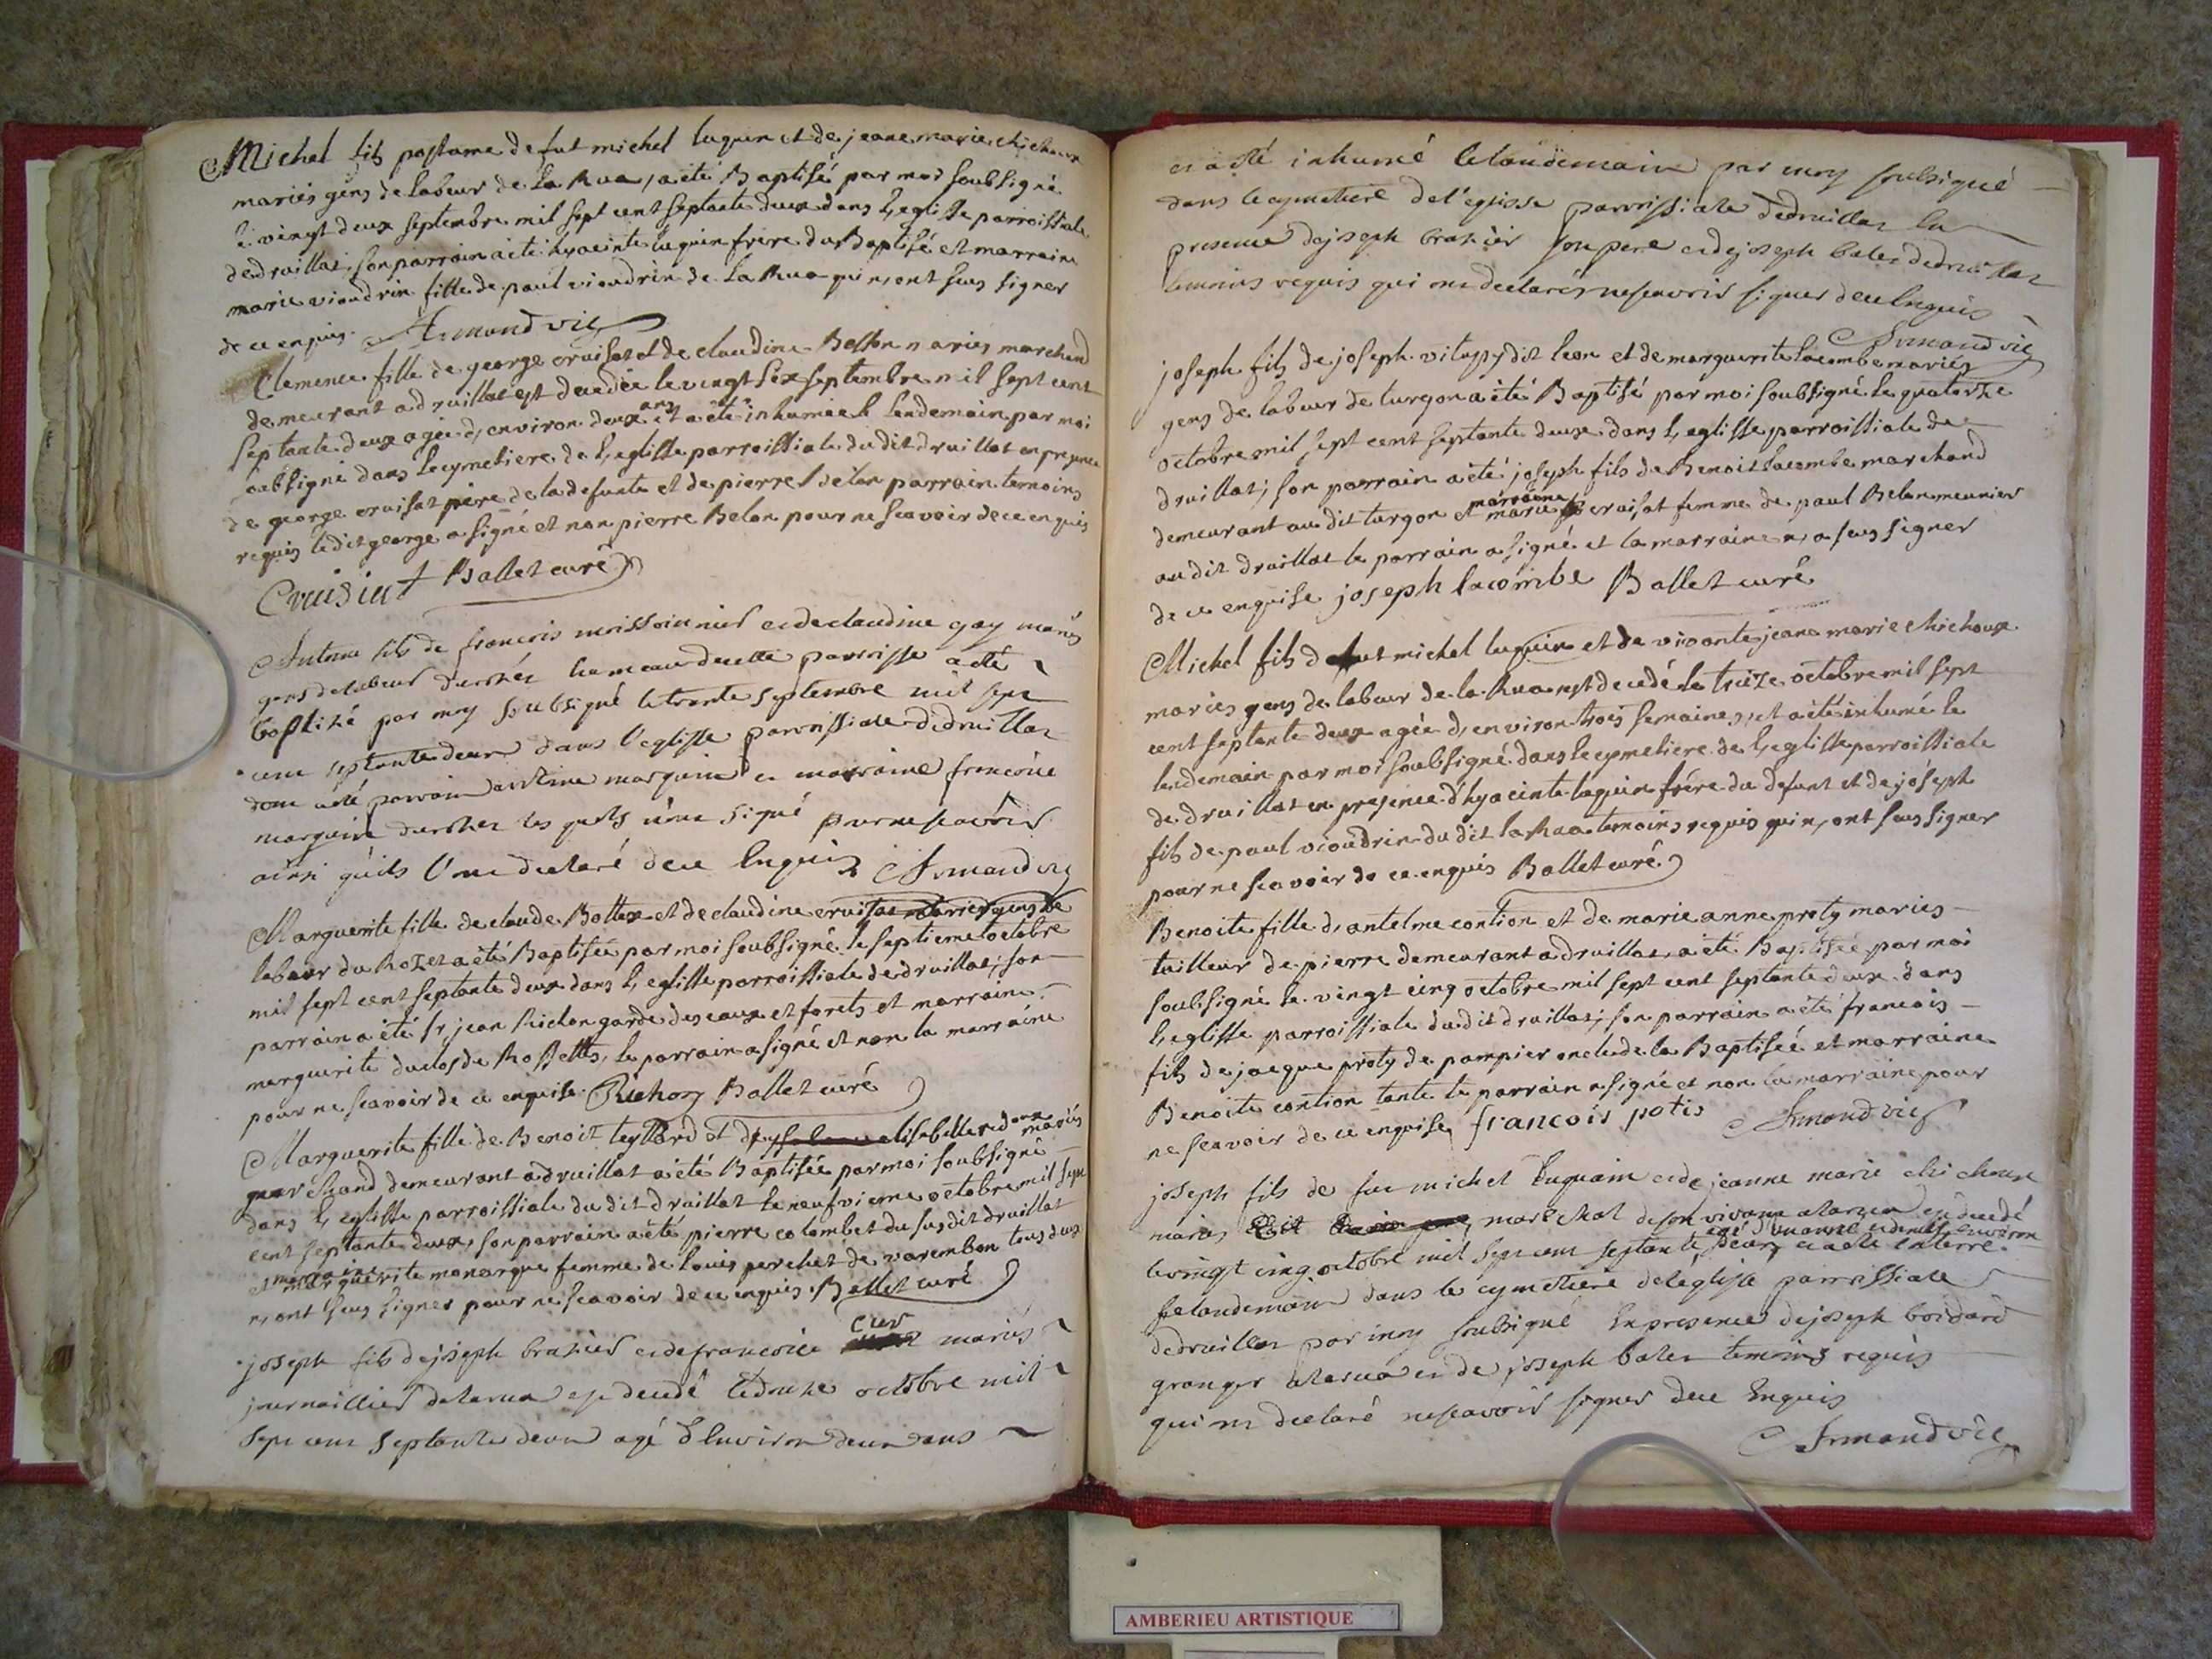 Michel fils postume de fut michel luquin et de jeane marie chichoux
mariés gens de labeur de la Rua, a été Baptisé par moi soubsigné
le vingt deux septembre mil sept cent septante deux dans l,eglisse parroissiale
de druillat; son parrain a été hyacinte luquin frere du Baptisé et marraine
marie vioudrin fille de paul vioudrin de la Rua qui n,ont sus signer
de ce enquis. Armand vic
Clemence fille de george cruisat et de claudine Bellon mariés marchand
demeurant a druillat est decedée le vingt six septembre mil sept cent
septante deux agée d,environ deux ans et a été inhumée le lendemain par moi
soubsigné dans le cymetiere de l,eglisse parroissiale du dit druillat en presence
de george cruisat pere de la defunte et de pierre Belon parrain temoins
requis le dit george a signé et non pierre Belon pour ne scavoir de ce enquis
Cruisiat Ballet curé
fils de francois moissonnier et de claudine gay mariés
gens de labeur hameau de cette parroisse a été
baptizé par moy soubsigné le trente septembre mil sept
cent septante deux dans l'eglisse parroissiale de druillat
dont a été parrain marquin et marraine francoise
marquin les quels n'ont signé pour ne scavoir
ainsi qu'ils l'ont declaré de ce enquis Armand vic
Marguerite fille de claude Bottex et de claudine cruisat mariés gens de
labeur du Rozet a été Baptisée par moi soubsigné le septieme octobre
mil sept cent septante deux dans l,eglisse parroissiale de druillat; son
parrain a été sr jean Richon garde des eaux et forets et marraine
marguerite duclos de Rossettes, le parrain a signé et non la marraine
pour ne scavoir de ce enquise. Richon Ballet curé
Marguerite fille de Benoit teyssard et d elisabelle redoux mariés
marchand demeurant a druillat a été Baptisée par moi soubsigné
dans l,eglisse parroissiale du dit druillat le neufvieme octobre mil sept
cent septante deux, son parrain a été pierre colombet du susdit druillat
et marraine marguerite monarque femme de louis perchet de varembon tous deux
n,ont sus signer pour ne scavoir de ce enquis. Ballet curé
joseph fils de joseph brasier et de francoise mariés
journaillier de la rua est decedé le douze octobre mil
sept cent septante deux agé d'environ deux ans
et a été inhumé le landemain par moy soubsigné
dans le cymetiere de l'eglisse parroissiale de druillat en
presence de joseph brasier son pere et de joseph balet de druillat
temoins requis qui ont declarés ne scavoir signer de ce enquis
Armand vic
joseph fils de joseph vitupy dit leon et de marguerite lacombe mariés
gens de labeur de turgon a été Baptisé par moi soubsigné le quatorze
octobre mil sept cent septante deux dans l,eglisse parroissiale de
druillat; son parrain a été joseph fils de Benoit lacombe marchand
demeurant au dit turgon et marraine marie cruisat femme de paul Belon meunier
au dit druillat le parrain a signé et la marraine n,a sus signer
de ce enquise joseph lacombe Ballet curé
Michel fils de fut michel luquin et de vivante jeane marie chichoux
mariés gens de labeur de la Rua est decedé le treize octobre mil sept
cent septante deux agée d,environ trois semaines, et a été inhumé le
lendemain par moi soubsigné dans le cymetiere de l,eglisse parroissiale
de druillat en presence d'hyacinte luquin frére du defunt et de jóseph
fils de paul vioudrin du dit la Rua temoins requis qui n,ont sus signer
pour ne scavoir de ce enquis Ballet curé
Benoite fille d,antelme contion et de marie anne proty mariés
tailleur de pierre demeurant a druillat, a été Baptisée par moi
soubsigné le vingt cinq octobre mil sept cent septante deux dans
l,eglisse parroissiale du dit druillat; son parrain a été francois
fils de jacque proty de pampier oncle de la Baptisée et marraine
Benoite contion tante le parrain a signé et non la marraine pour
ne scavoir de ce enquise, francois potis Armand vic
joseph fils de fut michel luquain et de jeanne marie chichoux
mariés marechal de son vivant a la rua est decedé
le vingt cinq octobre mil sept cent septante deux agé environ et a été enterré
le landemain dans le cymetiere de l'eglise parroissiale
de druillat par moy soubsigné en presence de joseph boidard
granger a la rua et de joseph balet temoins requis
qui ont declaré ne scavoir signer de ce enquis
Armand vic
AMBERIEU ARTISTIQUE